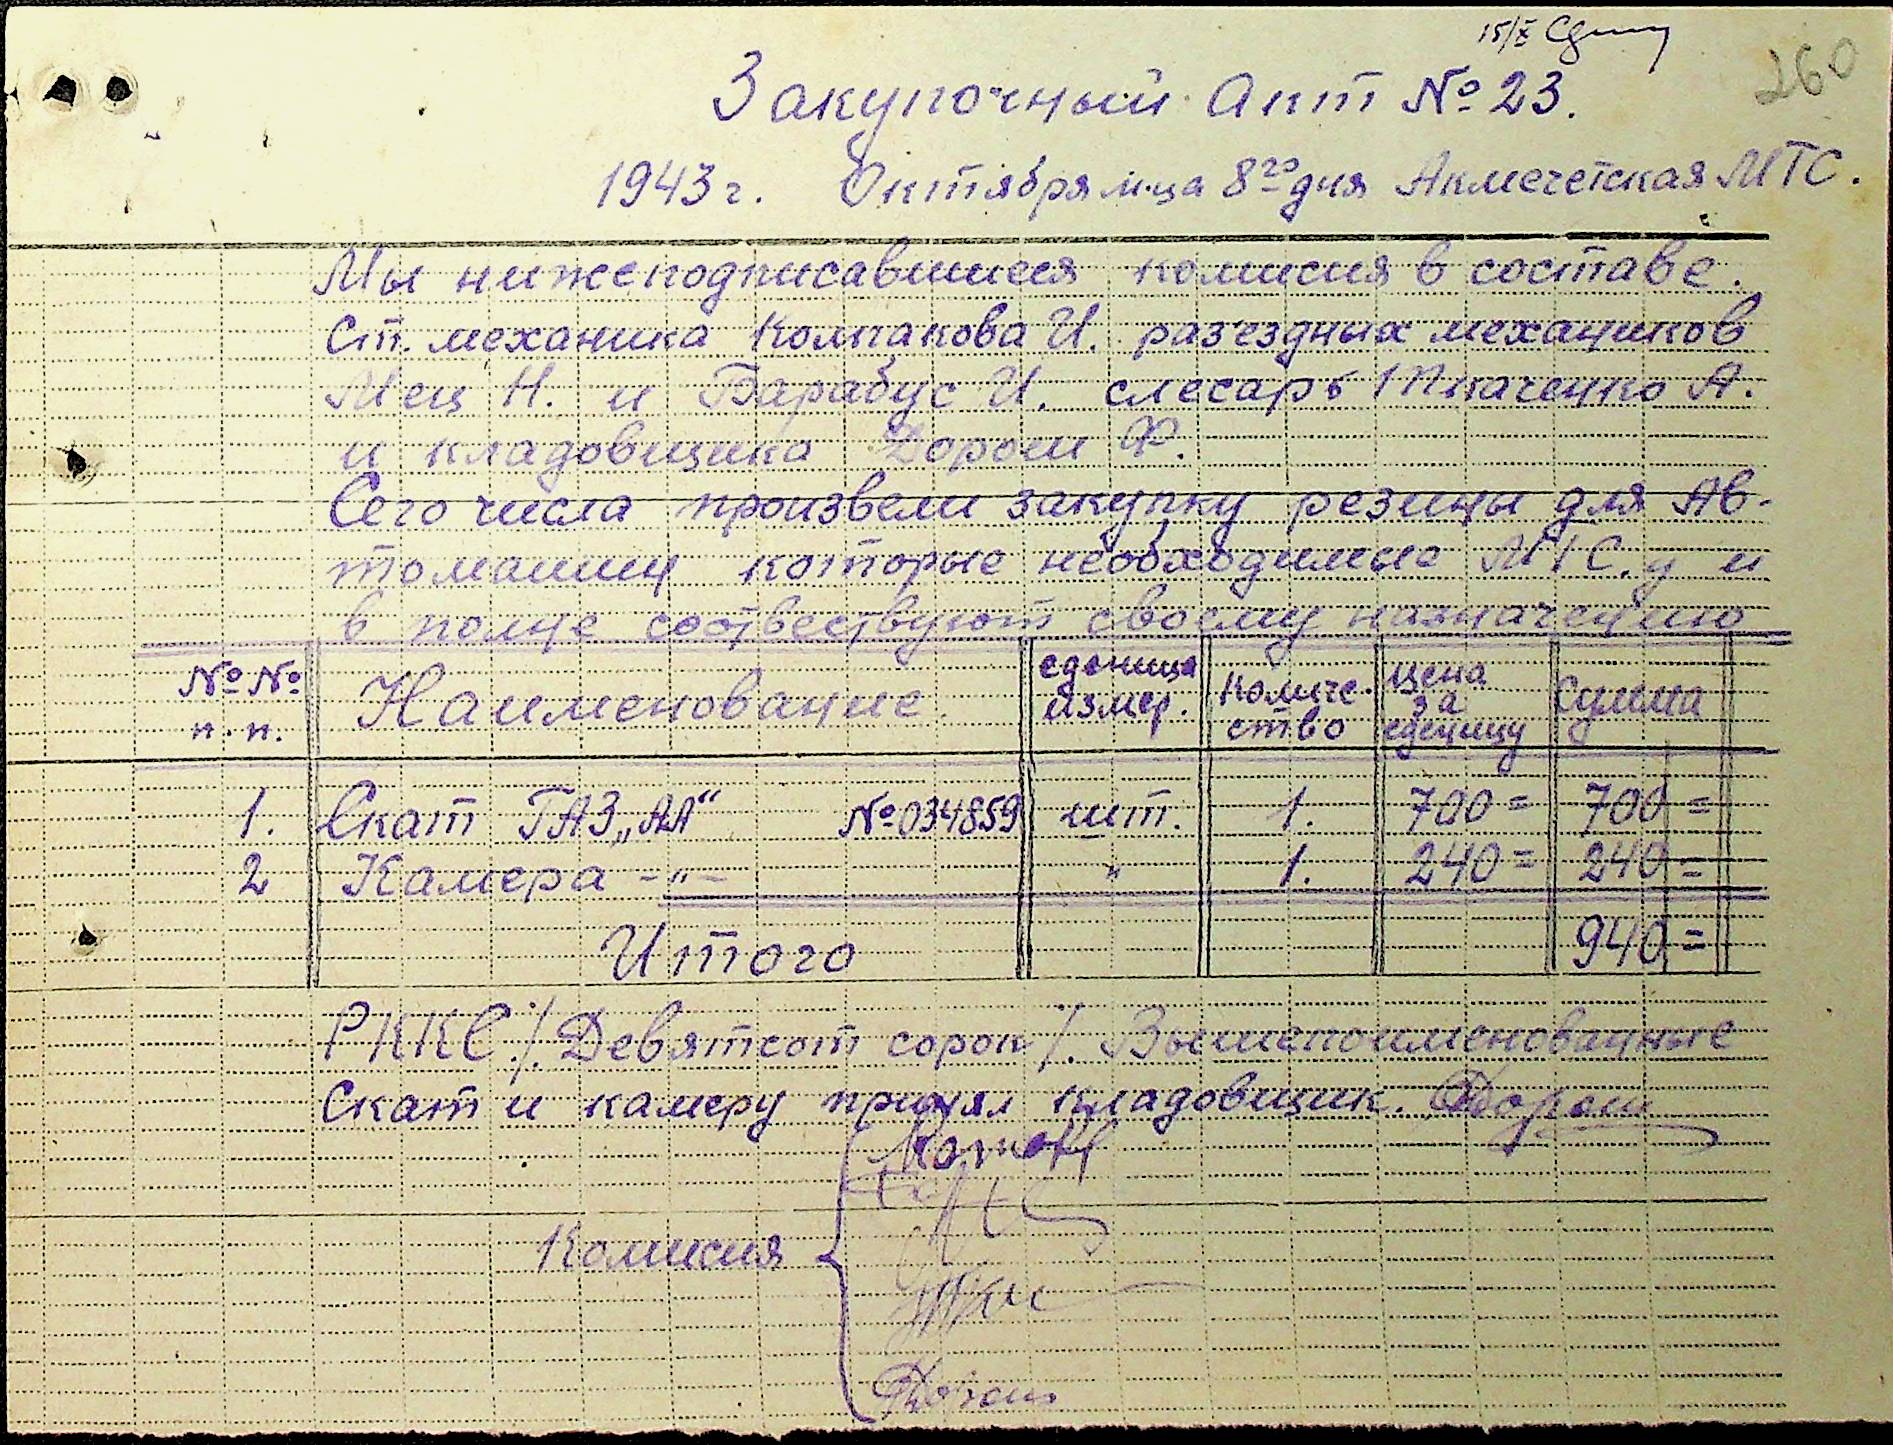 15/X
260
Закупочный Акт № 23.
1943 г. Октября м-ца 8го дня Акмечетская МТС.
Мы нижеподписавшиеся комисия в составе.
Ст. механика Колпакова И. раз'ездных механиков
Мец Н. и Барабус И. слесарь Ткаченко А.
и кладовщика Дорош Ф.
Сего числа произвели закупку резины для Ав-
томашин которые необходимые МТС. д и
в полне соотвествуют своему назначению
№ № п.п. Наименование. еденица измер. Количе-ство цена за еденицу Сумма
1. Скат ГАЗ „АА“ № 034859 шт. 1. 700= 700=
2 Камера -„- „ 1. 240= 240=
Итого 940=
РККС ./. Девятсот сорок ./. Вышепоименованные
Скат и камеру принял кладовщик. Дорош
Комисия
Дорош